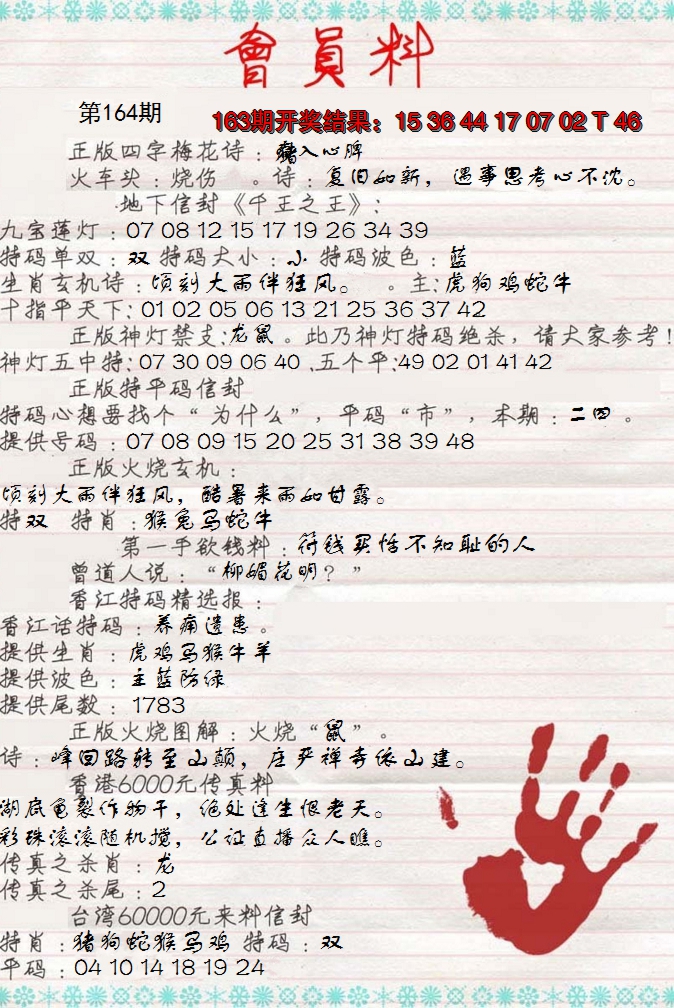 會員料
第164期
163期开奖结果：15 36 44 17 07 02 T 46
正版四字梅花诗：入心脾
火车头：烧伤 。诗：复旧如新，遇事思考心不沈。
地下信封《千王之王》：
九宝莲灯：07 08 12 15 17 19 26 34 39
特码单双：双 特码大小：小 特码波色：蓝
生肖玄机诗：顷刻大雨伴狂风。 。主：虎狗鸡蛇牛
十指平天下：01 02 05 06 13 21 25 36 37 42
正版神灯禁支：龙鼠。此乃神灯特码绝杀，请大家参考！
神灯五中特：07 30 09 06 40 .五个平：49 02 01 41 42
正版特平码信封
特码心想要找个“为什么”，平码“市”，本期：二四。
提供号码：07 08 09 15 20 25 31 38 39 48
正版火烧玄机：
顷刻大雨伴狂风，酷暑来雨如甘露。
特双 特肖：猴兔马蛇牛
第一手欲钱料：符钱买恬不知耻的人
曾道人说：“柳媚花明？”
香江特码精选报：
香江话特码：养痈遗患。
提供生肖：虎鸡马猴牛羊
提供波色：主蓝防绿
提供尾数：1783
正版火烧图解：火烧“鼠”。
诗：峰回路转至山巅，庄严禅寺依山建。
香港6000元传真料
湖底龟裂作物干，绝处逢生恨老天。
彩珠滚滚随机搅，公证直播众人瞧。
传真之杀肖：龙
传真之杀尾：2
台湾60000元来料信封
特肖：猪狗蛇猴马鸡 特码：双
平码：04 10 14 18 19 24